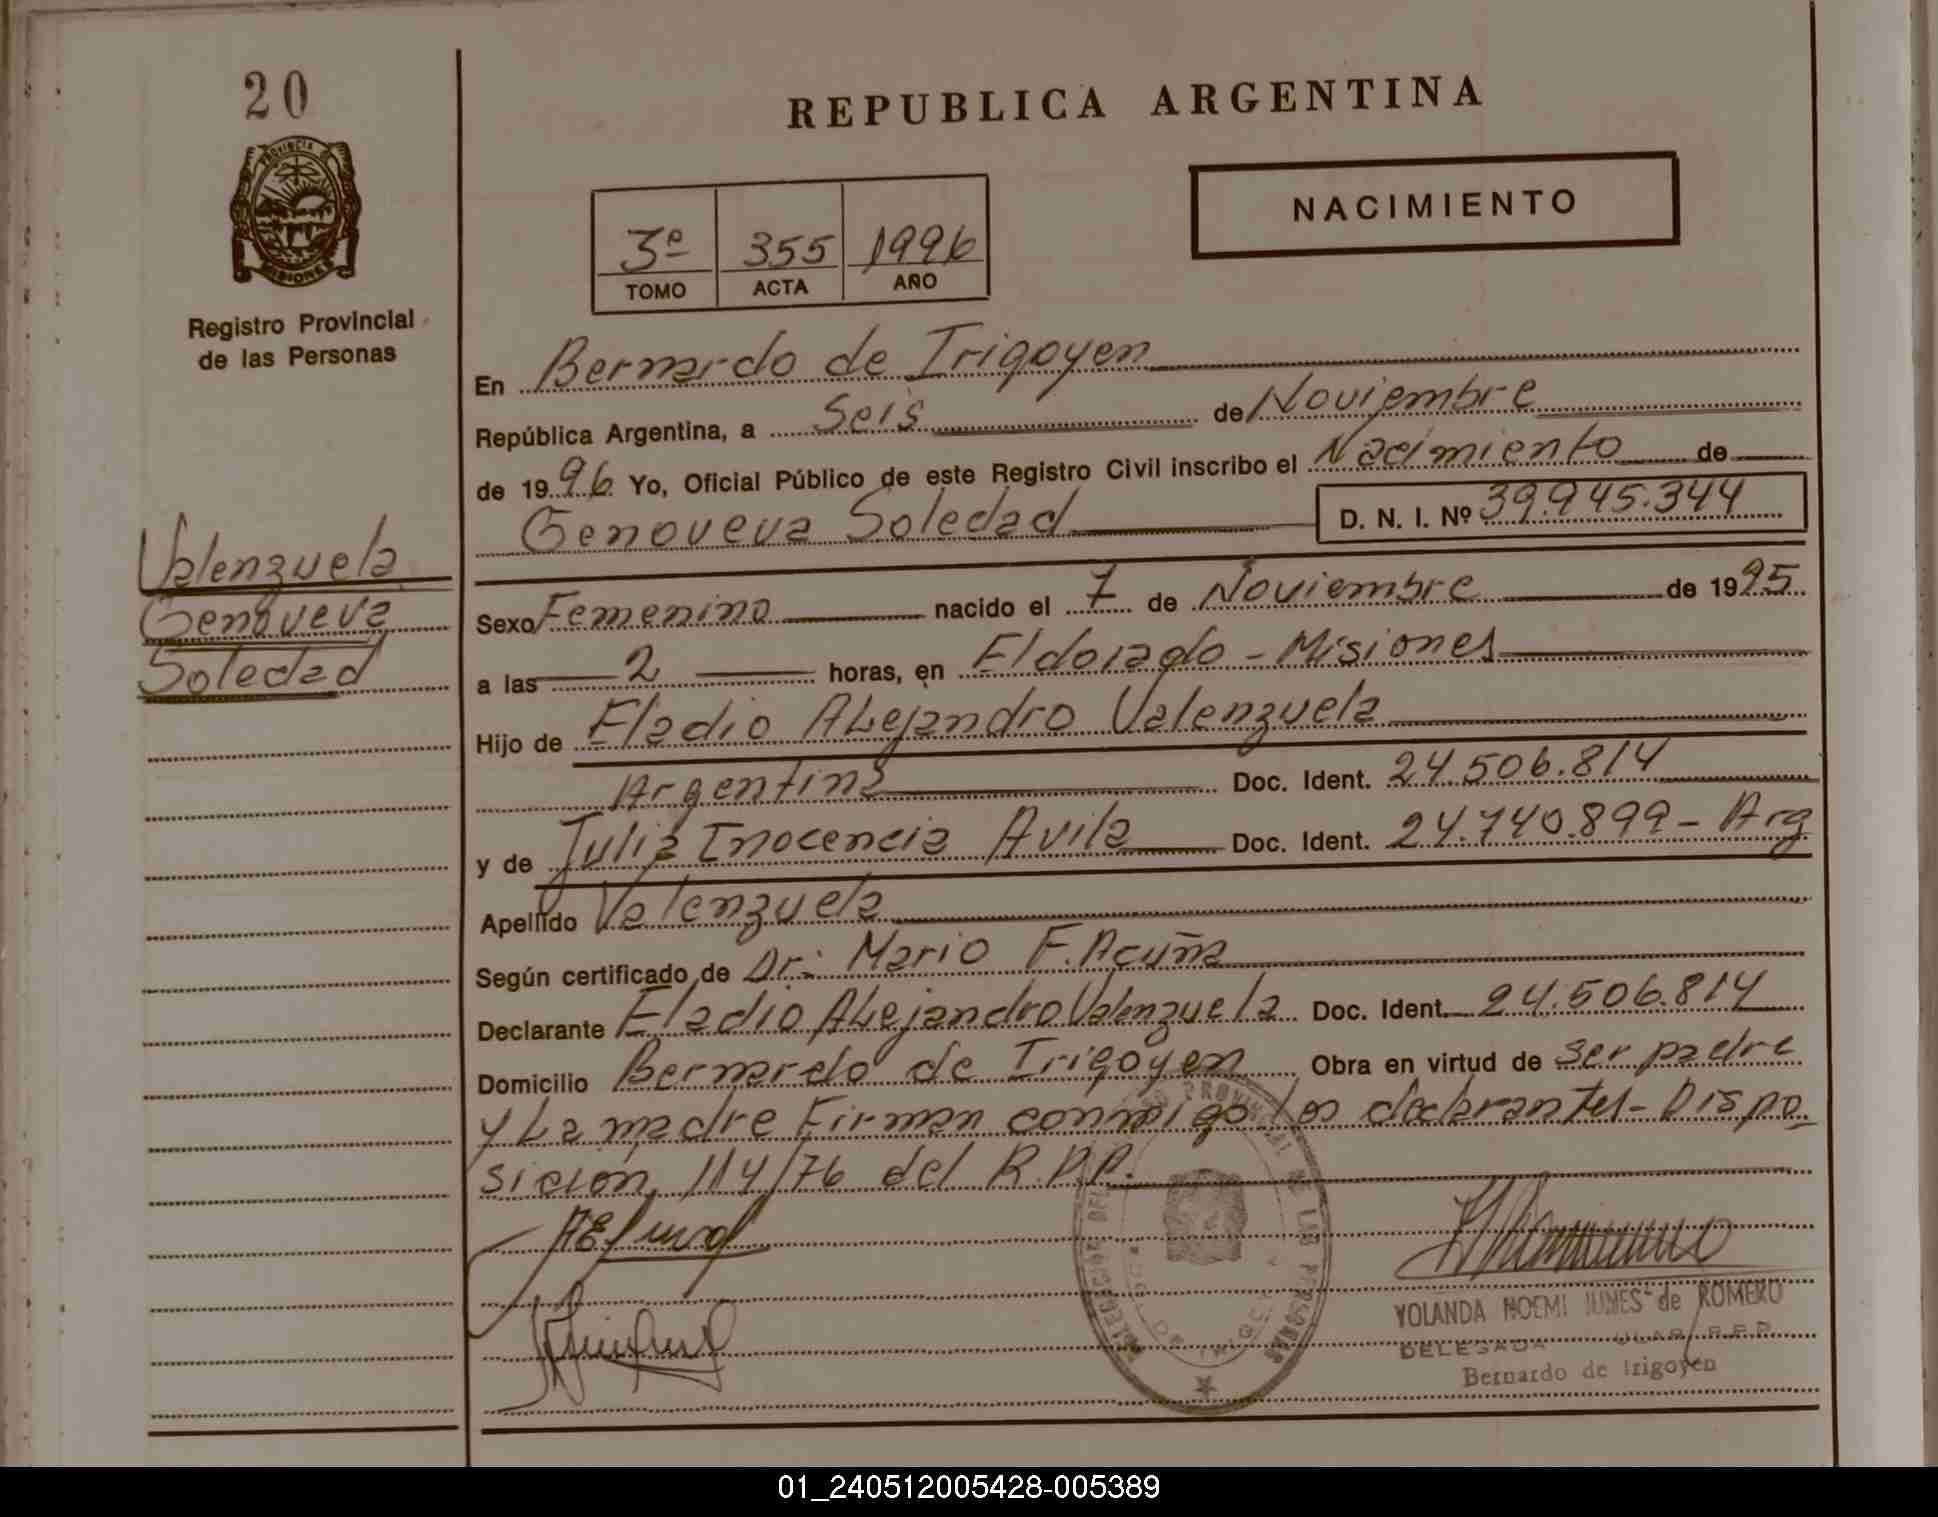 20
PROVINCIA DE
MISIONES
Registro Provincial
de las Personas
Valenzuela
Genoveva
Soledad
REPUBLICA ARGENTINA
3º 355 1996
TOMO ACTA AÑO
NACIMIENTO
En Bernardo de Irigoyen
República Argentina, a Seis de Noviembre
de 1996 Yo, Oficial Público de este Registro Civil inscribo el Nacimiento de
Genoveva Soledad D. N. I. Nº 39.945.344
Sexo Femenino nacido el 7 de Noviembre de 1995
a las 2 horas, en Eldorado - Misiones
Hijo de Eladio Alejandro Valenzuela
Argentina Doc. Ident. 24.506.814
y de Julia Inocencia Avila Doc. Ident. 24.740.899 - Arg
Apellido Valenzuela
Según certificado de Dr: Mario F. Acuña
Declarante Eladio Alejandro Valenzuela Doc. Ident. 24.506.814
Domicilio Bernardo de Irigoyen Obra en virtud de ser padre
y La madre Firman conmigo los declarantes - Dispo
sición 114/76 del R.P.P.
YOLANDA NOEMI de ROMERO
DELEGADA R.P.P.
Bernardo de Irigoyen
01_240512005428-005389